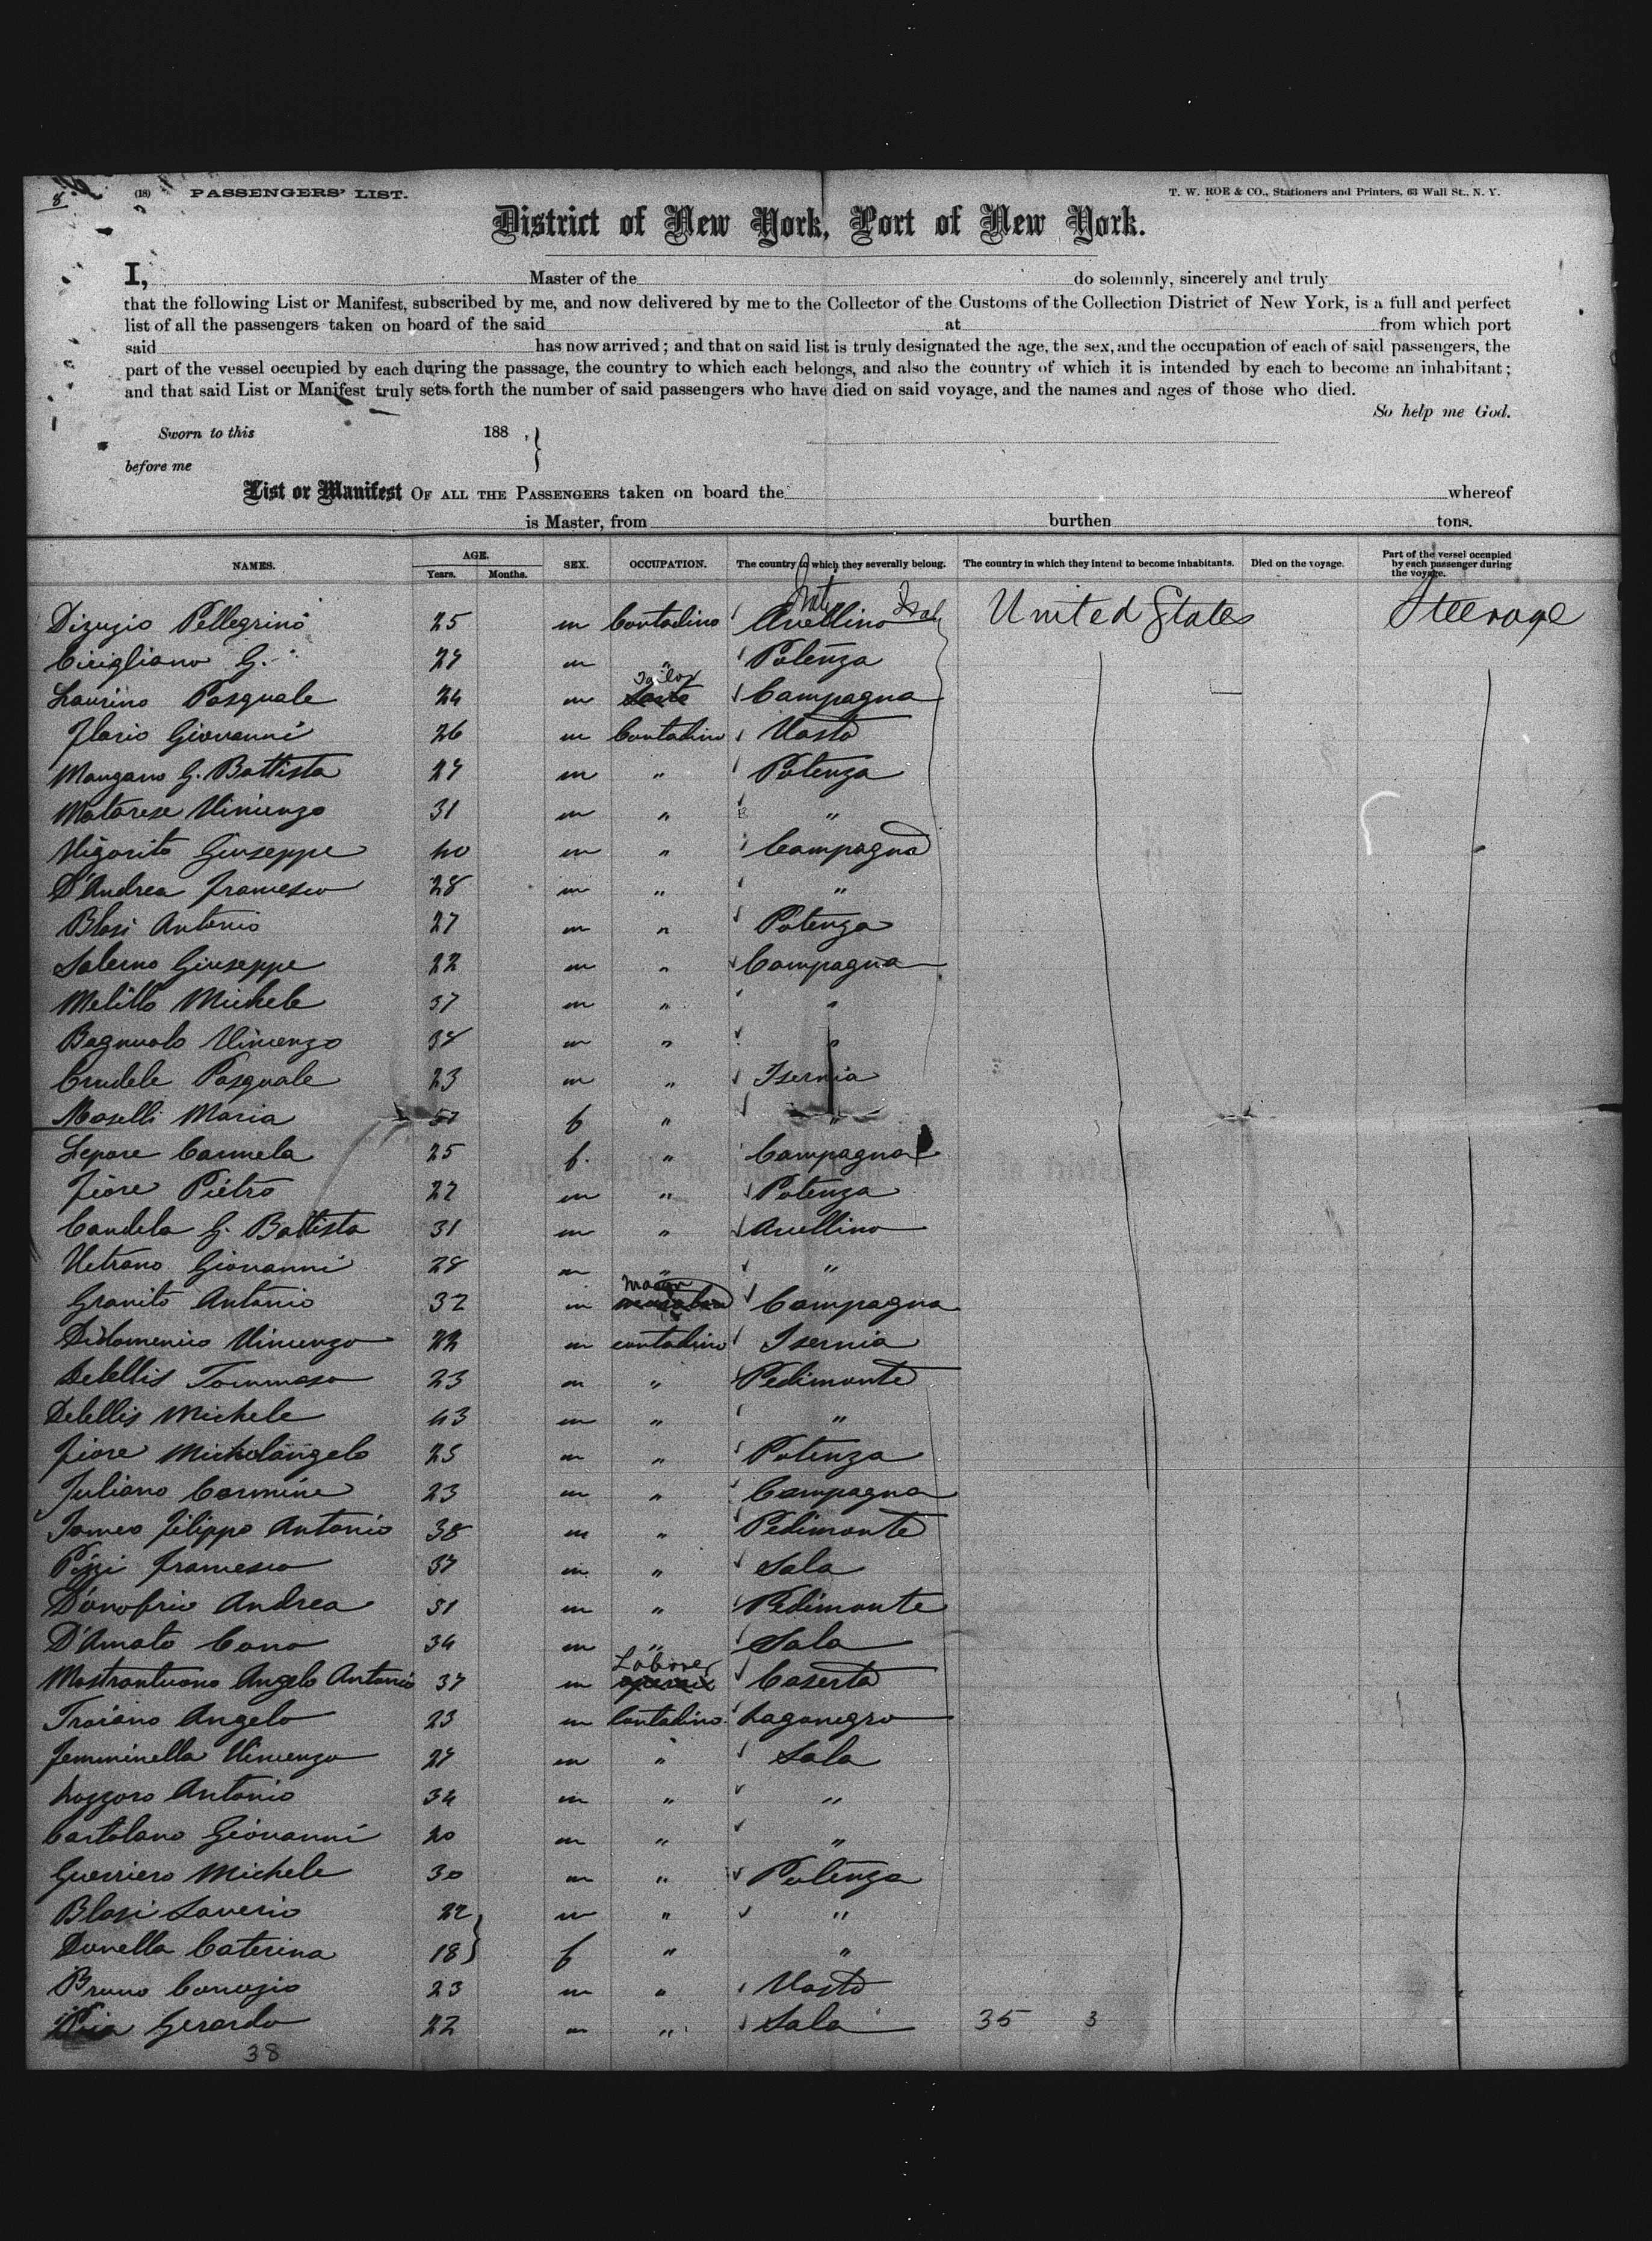 8 (18) PASSENGERS' LIST. T. W. ROE & CO., Stationers and Printers, 63 Wall St., N. Y.
District of New York, Port of New York.
I, Master of the do solemnly, sincerely and truly
that the following List or Manifest, subscribed by me, and now delivered by me to the Collector of the Customs of the Collection District of New York, is a full and perfect
list of all the passengers taken on board of the said at from which port
said has now arrived; and that on said list is truly designated the age, the sex, and the occupation of each of said passengers, the
part of the vessel occupied by each during the passage, the country to which each belongs, and also the country of which it is intended by each to become an inhabitant;
and that said List or Manifest truly sets forth the number of said passengers who have died on said voyage, and the names and ages of those who died.
So help me God.
Sworn to this 188 ,
before me
List or Manifest OF ALL THE PASSENGERS taken on board the whereof
is Master, from burthen tons.
NAMES. AGE. Years. Months. SEX. OCCUPATION. The country to which they severally belong. The country in which they intend to become inhabitants. Died on the voyage. Part of the vessel occupied by each passenger during the voyage.
Pellegrino 25 m Contadino Avellino United States Steerage
Cirigliano G. m " Potenza
Laurino Pasquale 24 m Tailor Campagna
Ilario Giovanni 26 m Contadino Vasto
Mangano G. Battista m " Potenza
Matarese Vincenzo 31 m " "
Vigorito Giuseppe 40 m " Campagna
D'Andrea Francesco 28 m " "
Blasi Antonio 27 m " Potenza
Salerno Giuseppe 22 m " Campagna
Melillo Michele 37 m " "
Bagnuolo Vincenzo m " "
Crudele Pasquale 23 m " Isernia
Maselli Maria f " "
Lepore Carmela 25 f. " Campagna
Fiore Pietro 22 m " Potenza
Candela G. Battista 31 m " Avellino
Vetrano Giovanni 28 m " "
Granito Antonio 32 m Mason Campagna
Didomenico Vincenzo 22 m contadino Isernia
Delellis Tommaso 23 m " Pedimonte
Delellis Michele 43 m " "
Fiore Michelangelo 25 m " Potenza
Juliano Carmine 23 m " Campagna
Tomeo Filippo Antonio 38 m " Pedimonte
Pizzi Francesco 37 m " Sala
D'onofrio Andrea 31 m " Pedimonte
D'Amato Cono 34 m " Sala
Mastrantuono Angelo Antonio 37 m Laborer Caserta
Troiano Angelo 23 m Contadino Lagonegro
Femminella Vincenzo m " Sala
Antonio 34 m " "
Cartolano Giovanni 20 m " "
Guerriero Michele 30 m " Potenza
Blasi Saverio 22 m " "
Donella Caterina 18 f " "
Bruno 23 m " Vasto
Gerardo 22 m " Sala 35 3
38